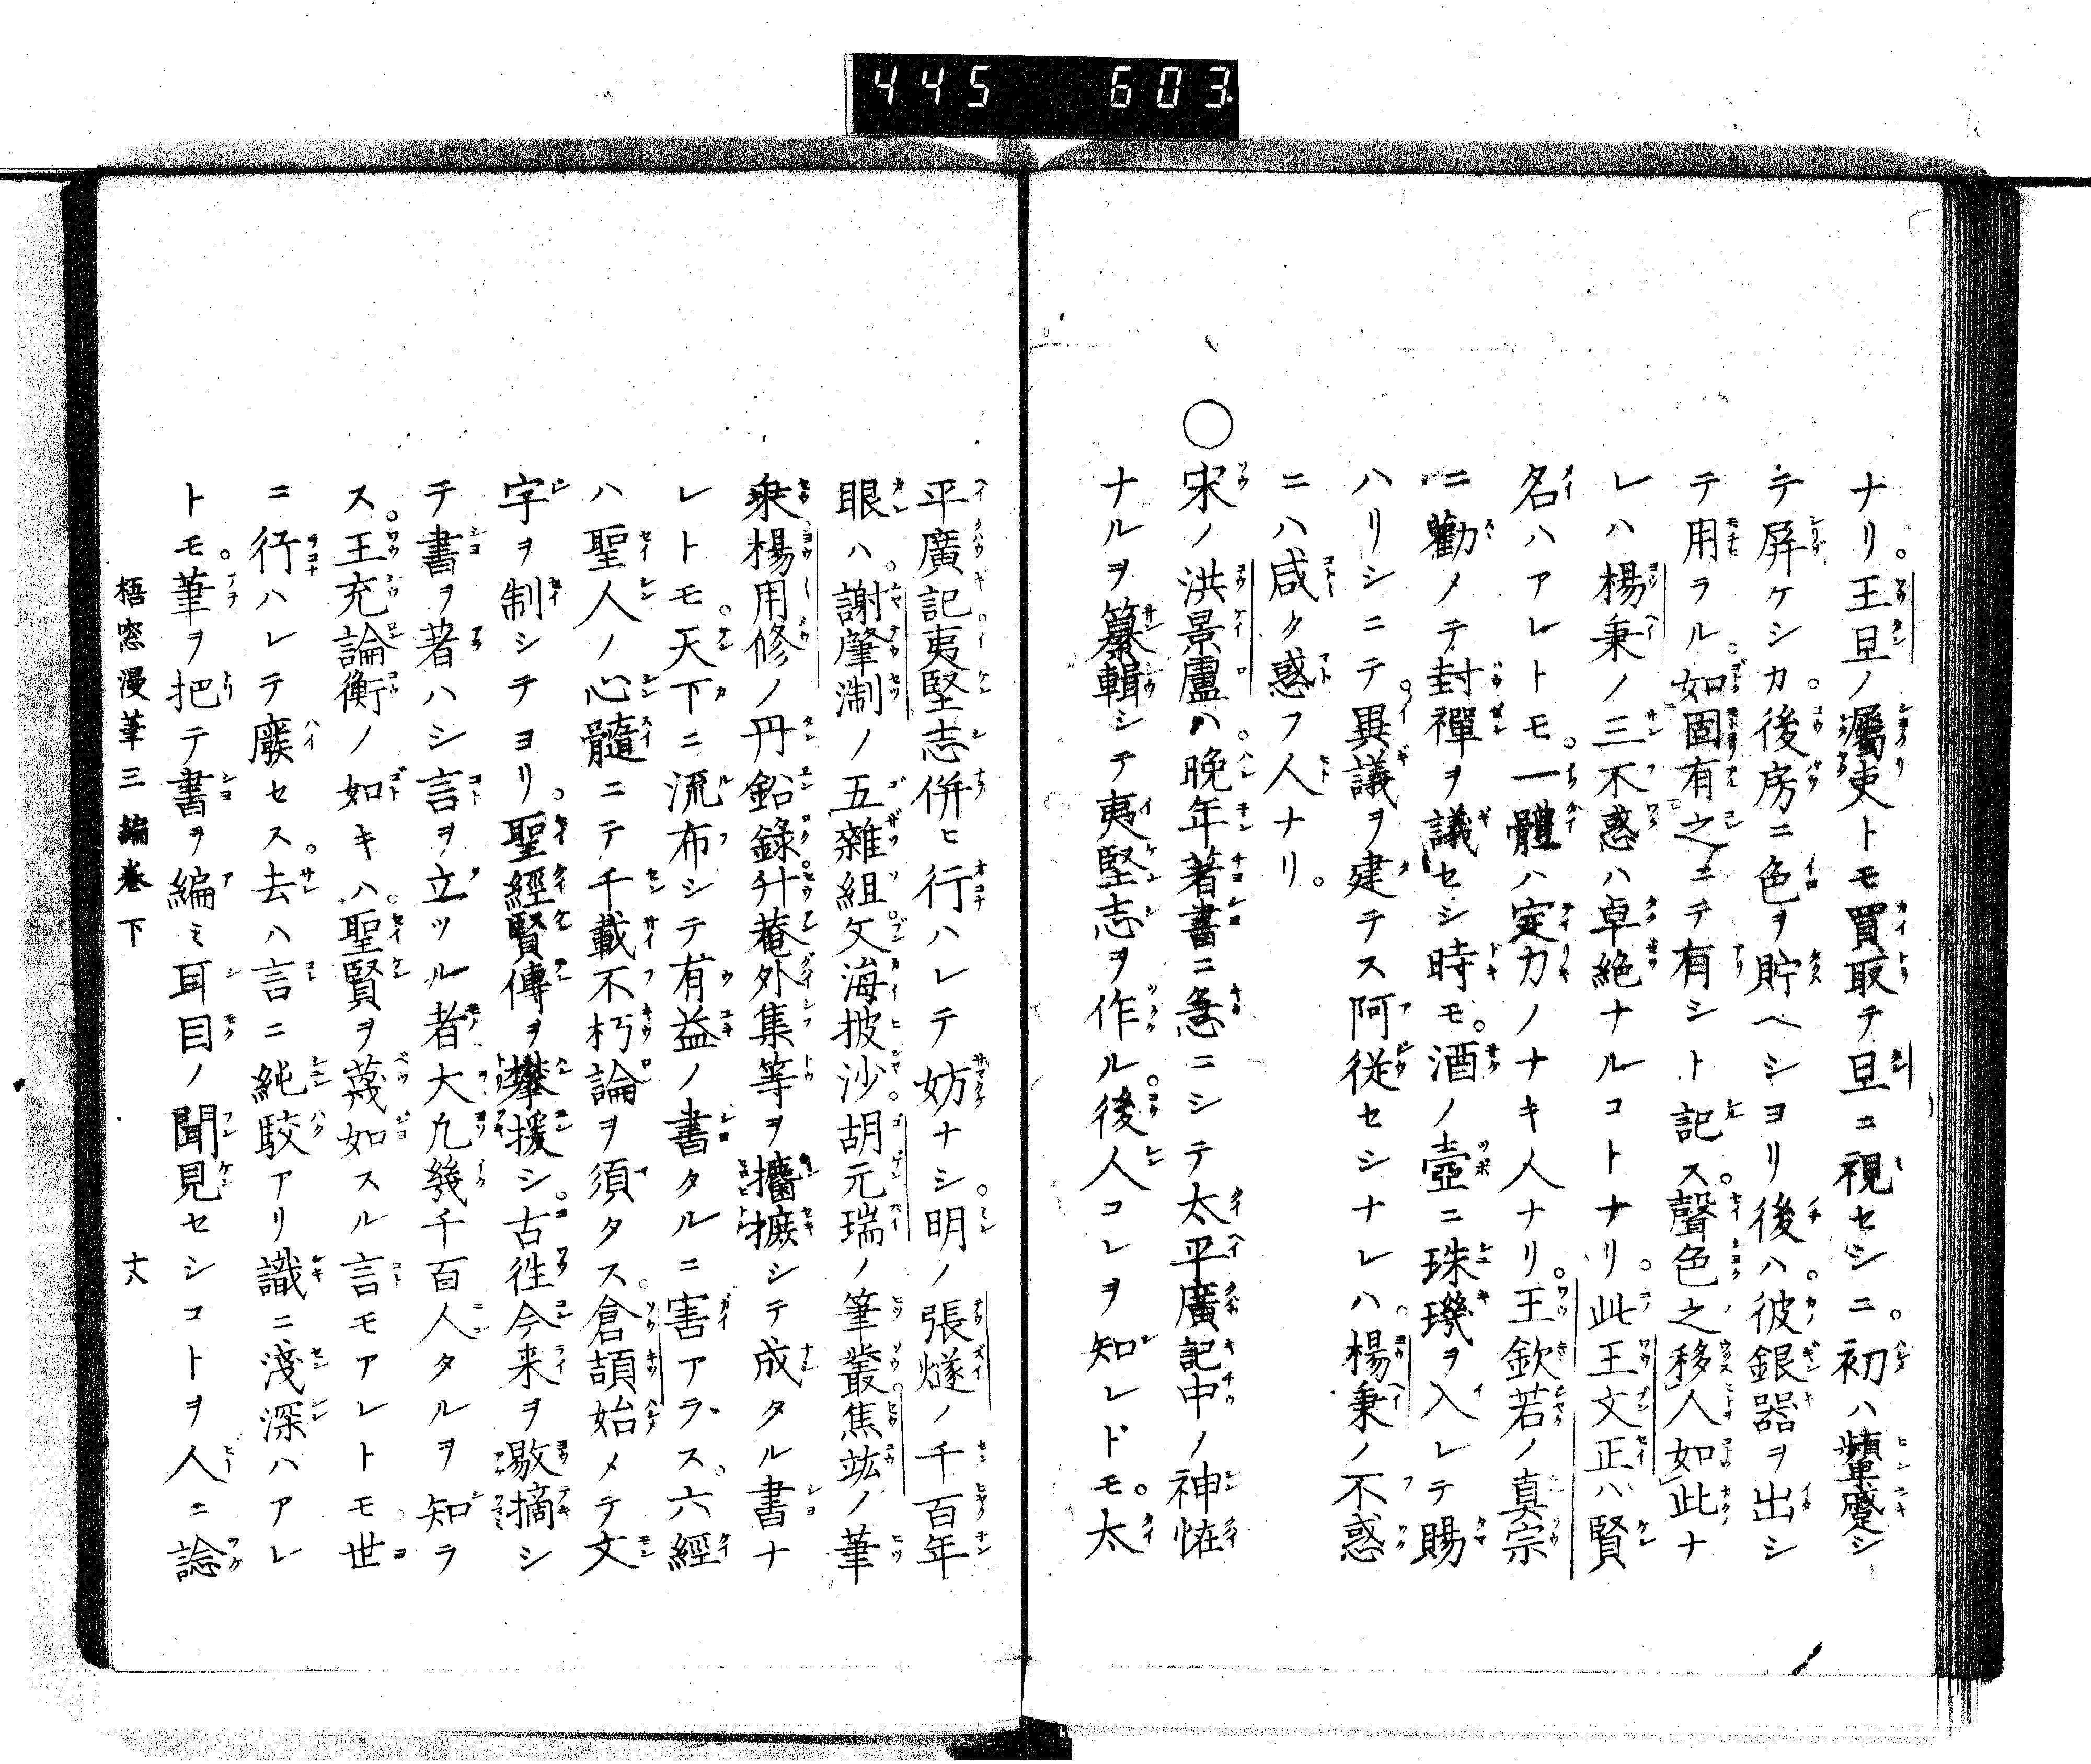 445 603
ナリ。王旦ノ屬吏トモ買取テ旦ニ視セシニ。初ハ顰蹙シ
テ屏ケシカ。後房ニ色ヲ貯ヘシヨリ後ハ。彼銀器ヲ出シ
テ用ラル。如固有之ニテ有シト記ス。聲色之移人如此ナ
レハ楊秉ノ三不惑ハ卓絶ナルコトナリ。此王文正ハ賢
名ハアレトモ。一體ハ定力ノナキ人ナリ。王欽若ノ真宗
ニ勸メテ封禪ヲ議セシ時モ。酒ノ壺ニ珠璣ヲ入レテ賜
ハリシニテ。異議ヲ建テス阿從セシナレハ。楊秉ノ不惑
ニハ咸ク惑フ人ナリ。
○宋ノ洪景盧ハ。晩年著書ニ急ニシテ太平廣記中ノ神恠
ナルヲ纂輯シテ夷堅志ヲ作ル。後人コレヲ知レドモ。太
平廣記夷堅志併ヒ行ハレテ妨ナシ。明ノ張燧ノ千百年
眼ハ。謝肇淛ノ五雜組。文海披沙。胡元瑞ノ筆叢。焦竑ノ筆
乗。楊用修ノ丹鉛錄。升菴外集等ヲ攟摭シテ成タル書ナ
レトモ。天下ニ流布シテ有益ノ書タルニ害アラス。六經
ハ聖人ノ心髓ニテ千載不朽論ヲ須タス。倉頡始メテ文
字ヲ制シテヨリ。聖經賢傳ヲ攀援シ。古徃今来ヲ㪣摘シ
テ書ヲ著ハシ言ヲ立ツル者大凢幾千百人タルヲ知ラ
ス。王充論衡ノ如キハ。聖賢ヲ蔑如スル言モアレトモ世
ニ行ハレテ廢セス。去ハ言ニ純駁アリ識ニ淺深ハアレ
トモ。筆ヲ把テ書ヲ編ミ耳目ノ聞見セシコトヲ人ニ諗
梧窓漫筆三編巻下 十八